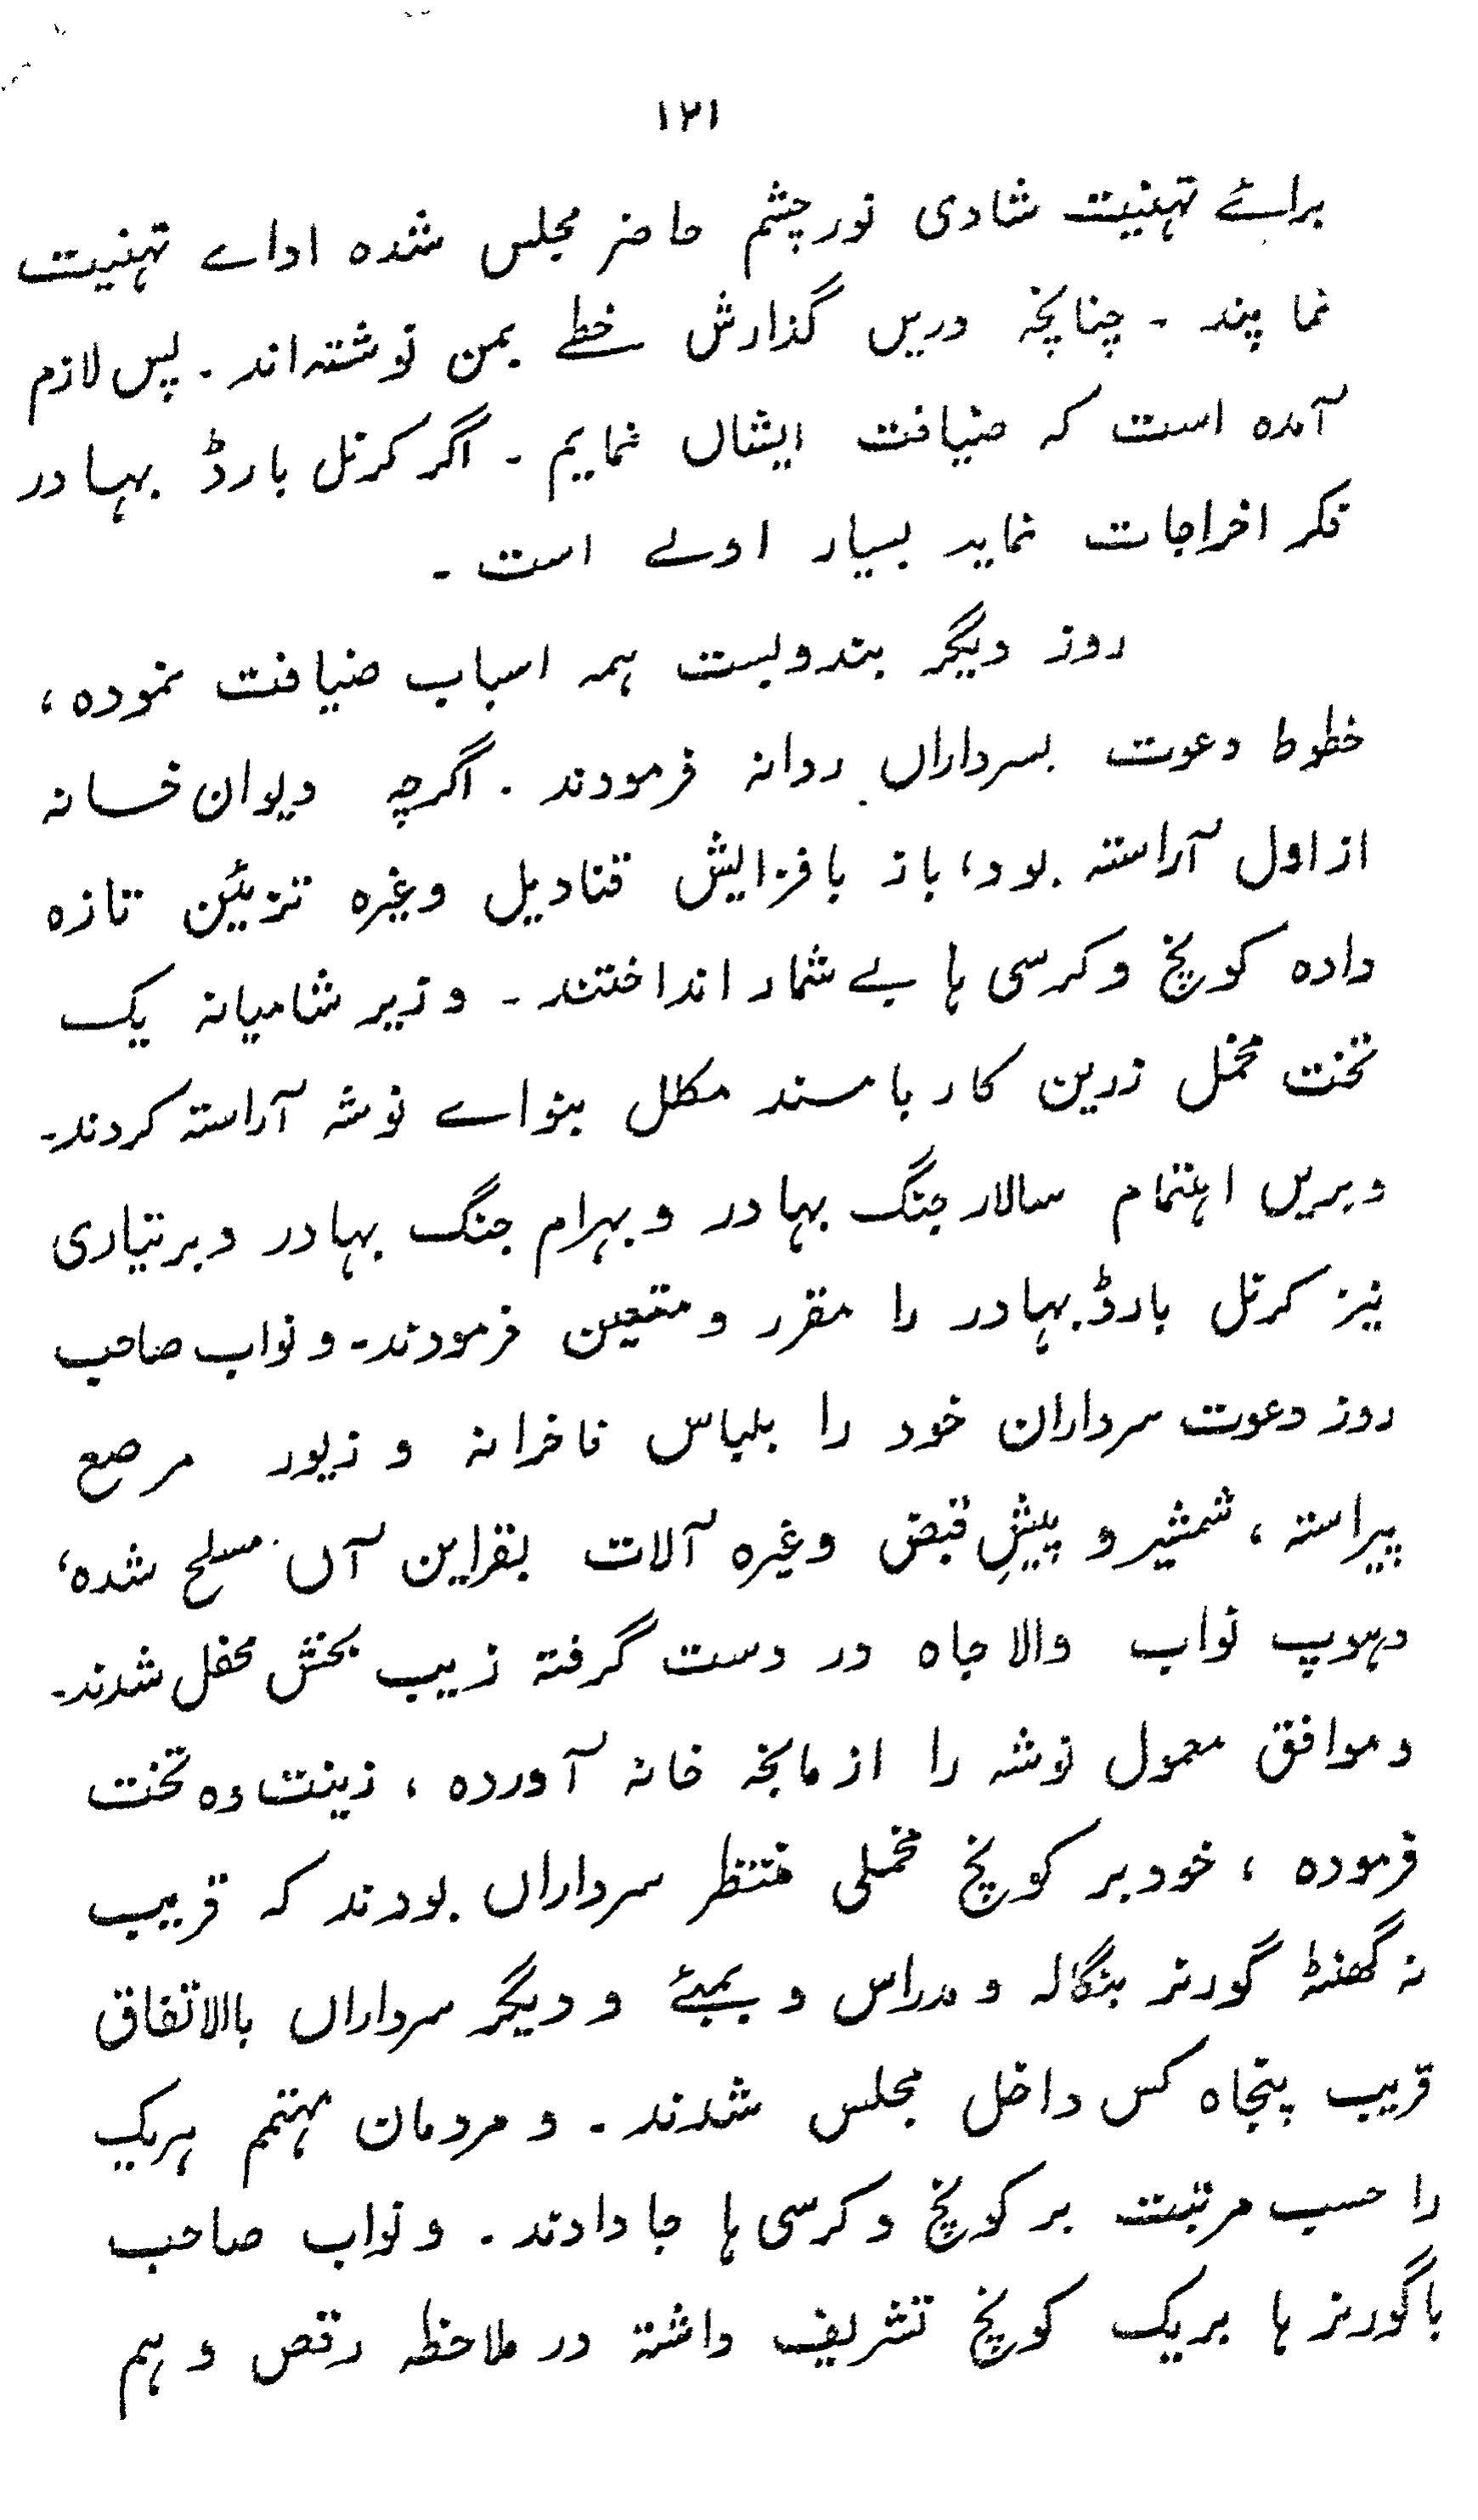 ۱۲۱
برائے تہنیت شادی نور چشم حاضر مجلس شدہ اداے تہنیت
نمایند ۔ چنانچہ دریں گذارش خطے بمن نوشتہ اند ۔ پس لازم
آمدہ است کہ ضیافت ایشاں نمایم ۔ اگر کرنل بارڈ بہادر
فکر اخراجات نماید بسیار اولے است ۔
روز دیگر بندوبست ہمہ اسباب ضیافت نمودہ ،
خطوط دعوت بسرداراں روانہ فرمودند ۔ اگرچہ دیوان خانہ
از اول آراستہ بود، باز بافزایش قنادیل وغیرہ تزئین تازہ
دادہ کوچ وکرسی ہا بے شمار انداختند ۔ وزیر شامیانہ یک
تخت مخمل زرین کار با مسند مکلل بنواے نوشہ آراستہ کردند۔
وبریں اہتمام سالار جنگ بہادر و بہرام جنگ بہادر و برتیاری
نیز کرنل بارڈ بہادر را مقرر و متعین فرمودند۔ و نواب صاحب
روز دعوت سرداران خود را بلباس فاخرانہ و زیور مرصع
پیراستہ ، شمشیر و پیشِ قبض وغیرہ آلات بقراین آں مسلح شدہ،
دہوپ نواب والا جاہ در دست گرفتہ زیب بخش محفل شدند۔
و موافق معمول نوشہ را از مانجہ خانہ آوردہ ، زینت دہ تخت
فرمودہ ، خود بر کوچ مخملی منتظر سرداراں بودند کہ قریب
نہ گھنٹہ گورنر بنگالہ و مدراس و بمبئے و دیگر سرداراں بالاتفاق
قریب پنجاہ کس داخل مجلس شدند ۔ و مردمان مہتمم ہریک
را حسب مرتبت بر کوچ و کرسی ہا جا دادند ۔ و نواب صاحب
باگورنر ہا بریک کوچ تشریف داشتہ در ملاحظہ رقص و ہم